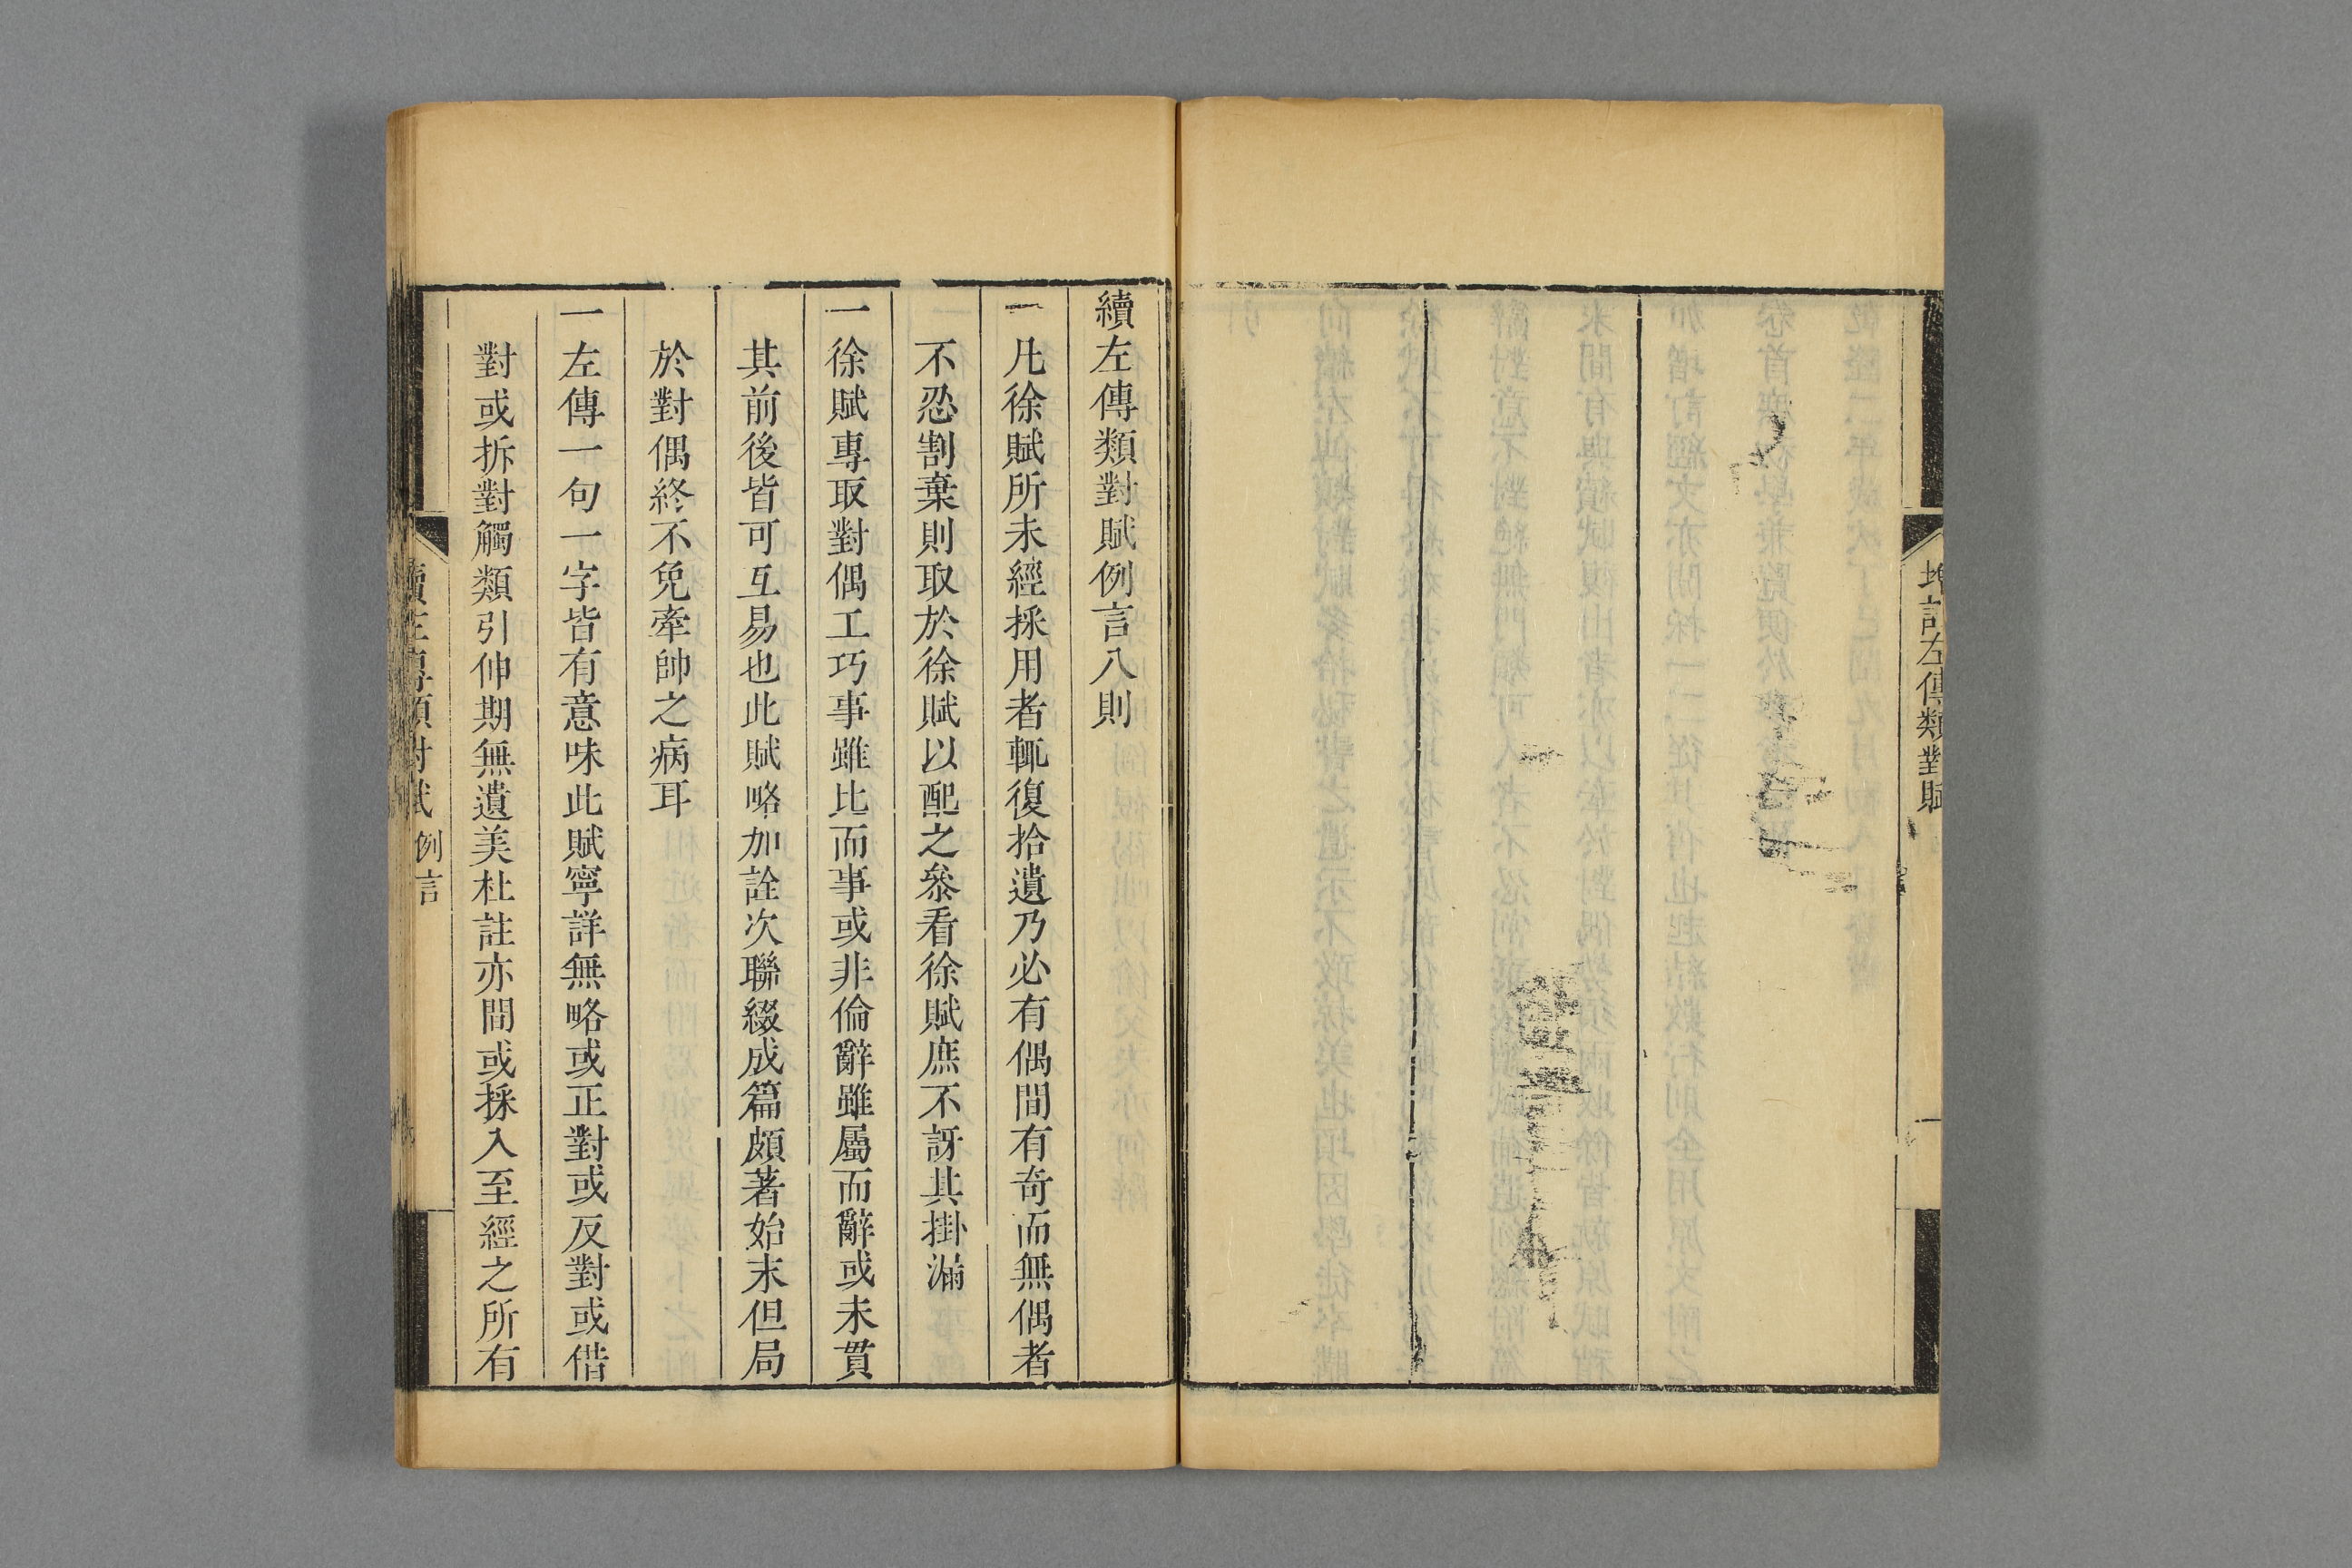 增訂左傳類對賦
一
續左傳類對賦例言八則
一凡徐賦所未經採用者輒復拾遺乃必有偶間有奇而無偶者
不忍割棄則取於徐賦以配之叅看徐賦庶不訝其掛漏
一徐賦專取對偶工巧事雖比而事或非倫辭雖屬而辭或未貫
其前後皆可互易也此賦略加詮次聯綴成篇頗著始末但局
於對偶終不免牽帥之病耳
一左傳一句一字皆有意味此賦寧詳無略或正對或反對或借
對或拆對觸類引伸期無遺美杜註亦間或採入至經之所有
續左傳類對賦 例言